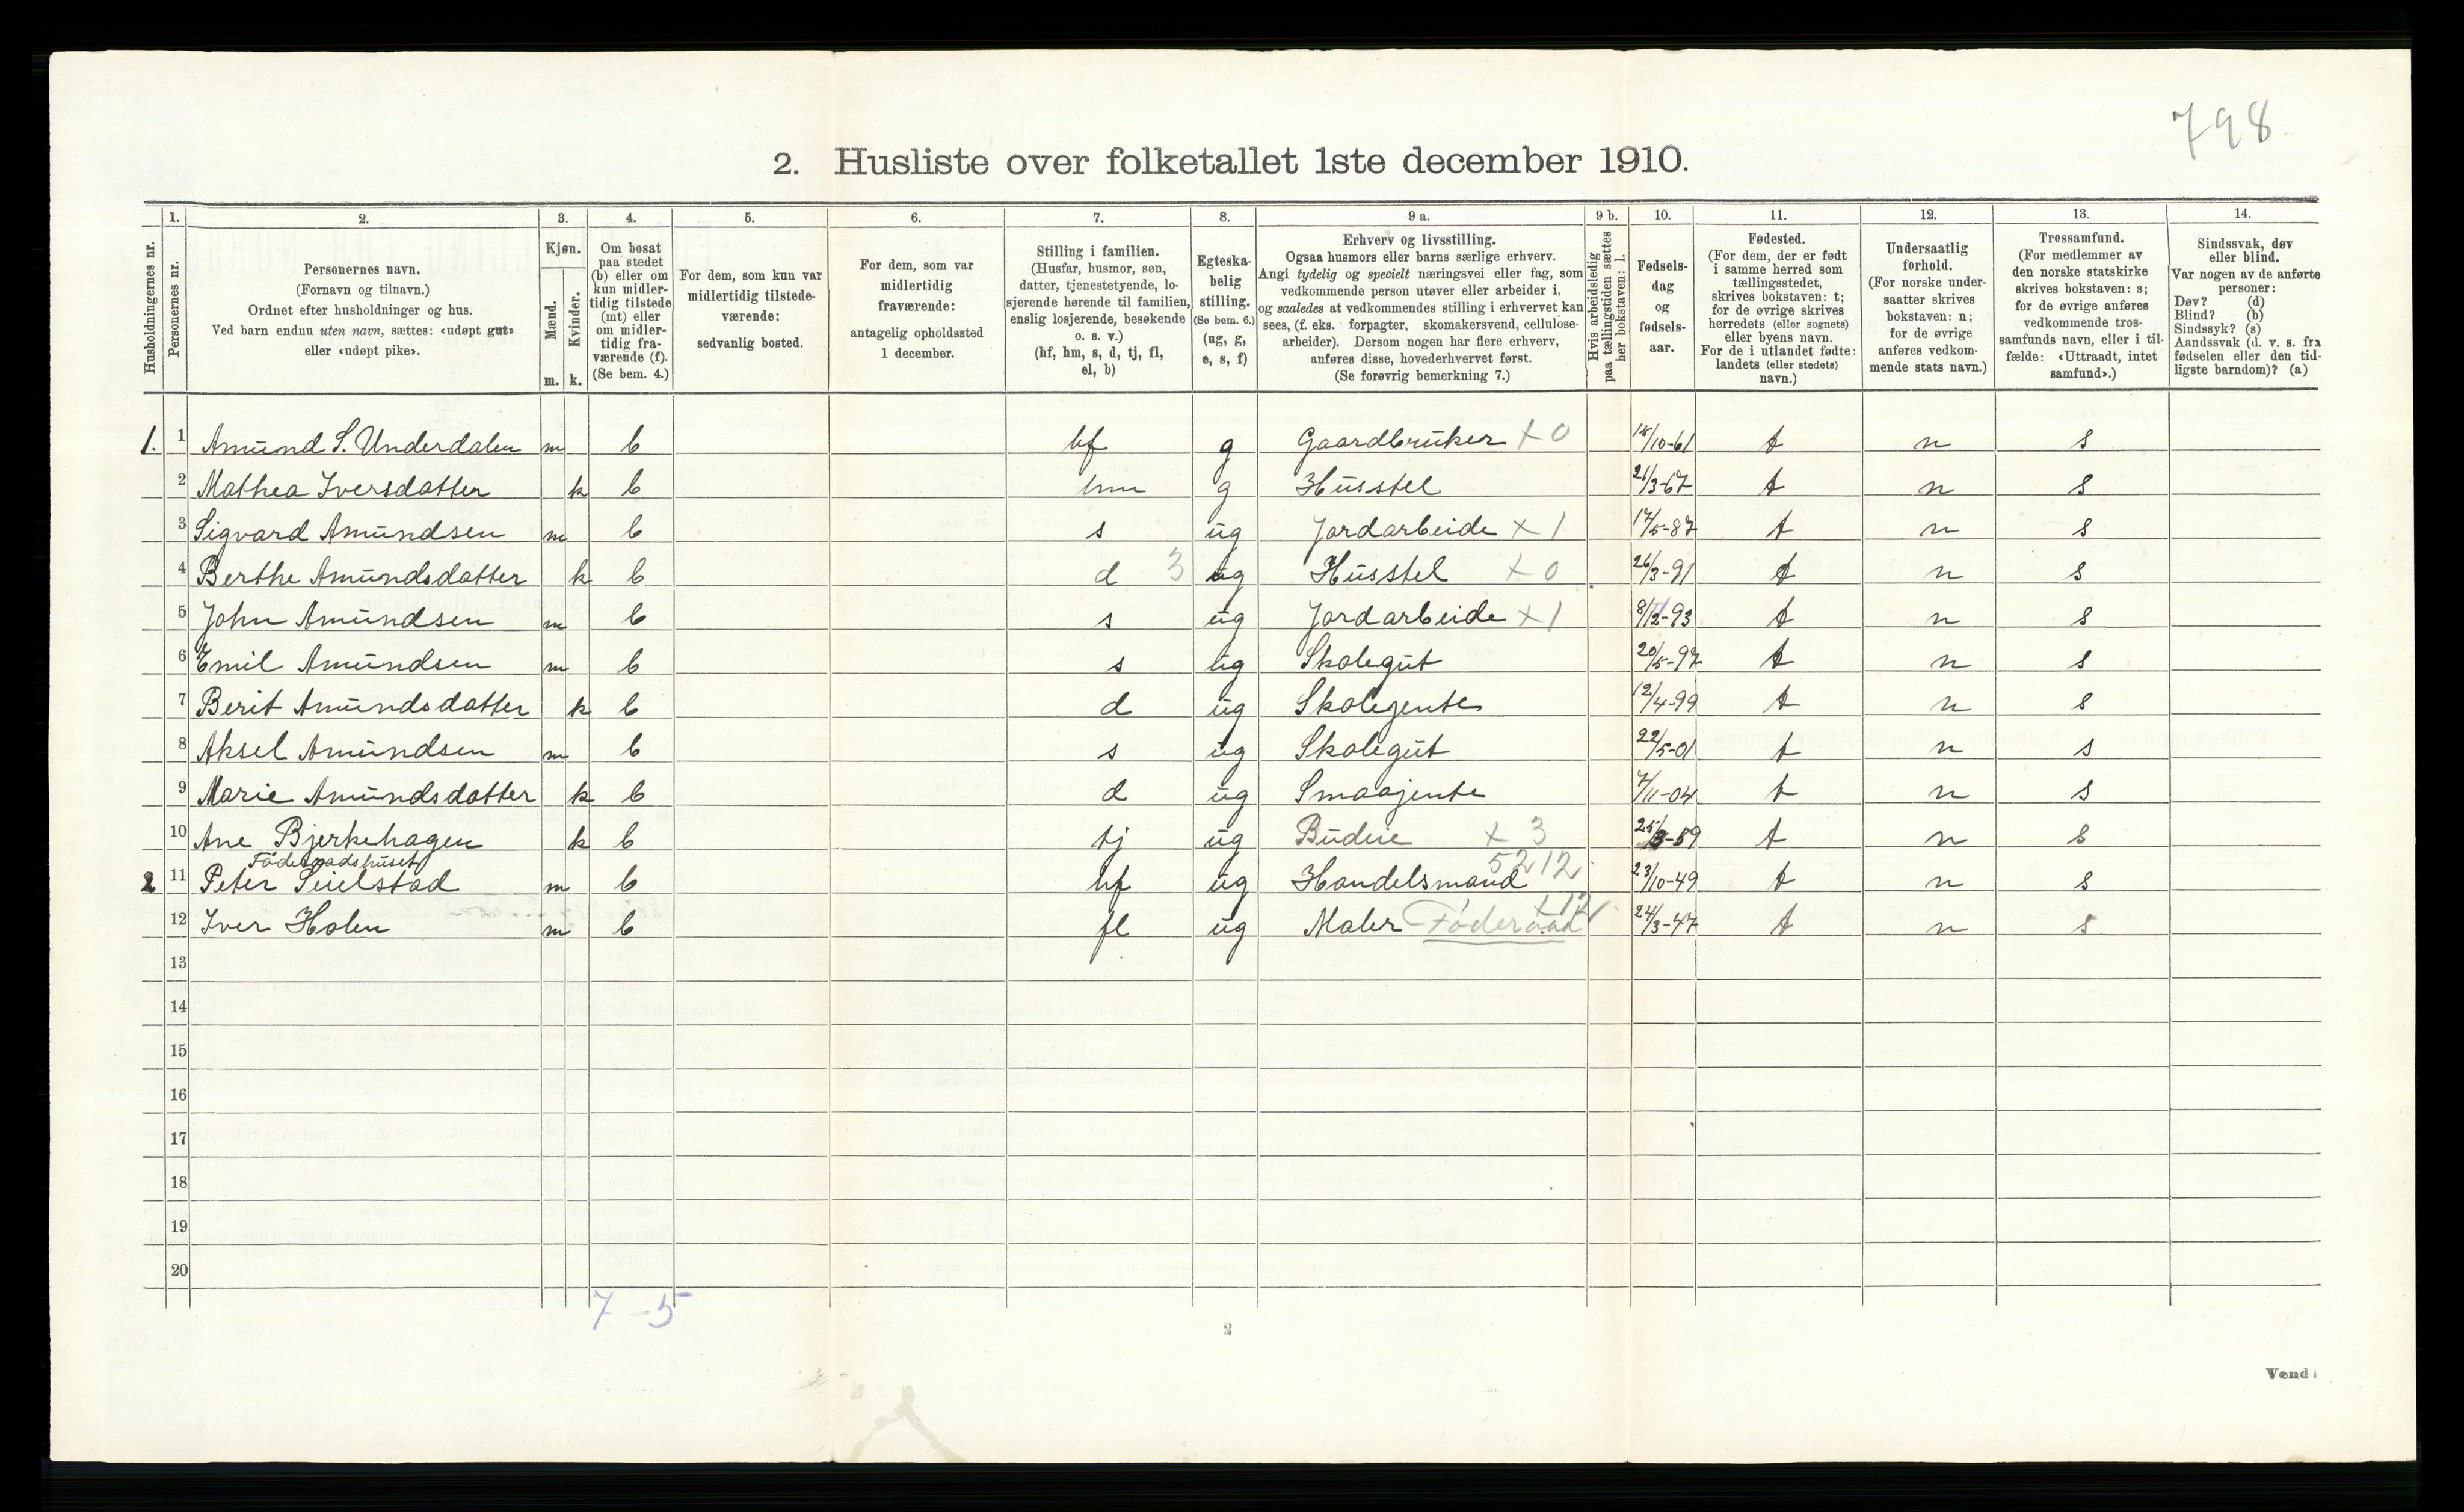 798
2. Husliste over folketallet 1ste december 1910.
Husholdningernes nr.
1. Personernes nr.
2. Personernes navn.
(Fornavn og tilnavn.)
Ordnet efter husholdninger og hus.
Ved barn endnu uten navn, sættes: «udøpt gut»
eller «udøpt pike».
3. Kjøn.
Mænd. m.
Kvinder. k.
4. Om bosat
paa stedet
(b) eller om
kun midler-
tidig tilstede
(mt) eller
om midler-
tidig fra-
værende (f).
(Se bem. 4.)
5. For dem, som kun var
midlertidig tilstede-
værende:
sedvanlig bosted.
6. For dem, som var
midlertidig
fraværende:
antagelig opholdssted
1 december.
7. Stilling i familien.
(Husfar, husmor, søn,
datter, tjenestetyende, lo-
sjerende hørende til familien,
enslig losjerende, besøkende
o. s. v.)
(hf, hm, s, d, tj, fl,
el, b)
8. Egteska-
belig
stilling.
(Se bem. 6.)
(ug, g,
e, s, f)
9 a. Erhverv og livsstilling.
Ogsaa husmors eller barns særlige erhverv.
Angi tydelig og specielt næringsvei eller fag, som
vedkommende person utøver eller arbeider i,
og saaledes at vedkommendes stilling i erhvervet kan
sees, (f. eks. forpagter, skomakersvend, cellulose-
arbeider). Dersom nogen har flere erhverv,
anføres disse, hovederhvervet først.
(Se forøvrig bemerkning 7.)
9 b. Hvis arbeidsledig
paa tællingstiden sættes
her bokstaven: l.
10. Fødsels-
dag
og
fødsels-
aar.
11. Fødested.
(For dem, der er født
i samme herred som
tællingsstedet,
skrives bokstaven: t;
for de øvrige skrives
herredets (eller sognets)
eller byens navn.
For de i utlandet fødte:
landets (eller stedets)
navn.)
12. Undersaatlig
forhold.
(For norske under-
saatter skrives
bokstaven: n;
for de øvrige
anføres vedkom-
mende stats navn.)
13. Trossamfund.
(For medlemmer av
den norske statskirke
skrives bokstaven: s;
for de øvrige anføres
vedkommende tros-
samfunds navn, eller i til-
fælde: «Uttraadt, intet
samfund».)
14. Sindssvak, døv
eller blind.
Var nogen av de anførte
personer:
Døv? (d)
Blind? (b)
Sindssyk? (s)
Aandssvak (d. v. s. fra
fødselen eller den tid-
ligste barndom)? (a)
1. 1 Amund S. Underdalen m b hf g Gaardbruker x 0 18/10-61 t n s
2 Mathea Iversdatter k b hm g Husstel 21/3-67 t n s
3 Sigvard Amundsen m b s ug Jordarbeide x 1 17/5-87 t n s
4 Berthe Amundsdatter k b d 3 ug Husstel x 0 26/3-91 t n s
5 John Amundsen m b s ug Jordarbeide x 1 8/12-93 t n s
6 Emil Amundsen m b s ug Skolegut 20/5-97 t n s
7 Berit Amundsdatter k b d ug Skolegente 12/4-99 t n s
8 Aksel Amundsen m b s ug Skolegut 22/5-01 t n s
9 Marie Amundsdatter k b d ug Smaajente 7/11-04 t n s
10 Ane Bjerkehagen k b tj ug Budeie x 3 25/3-59 t n s
Föderaadshuset 5212
2 11 Peter Seielstad m b hf ug Handelsmand 23/10-49 t n s
x 12
12 Iver Holen m b fl ug Maler Föderaad 24/3-47 t n s
13
14
15
16
17
18
19
20
7-5
2
Vend!